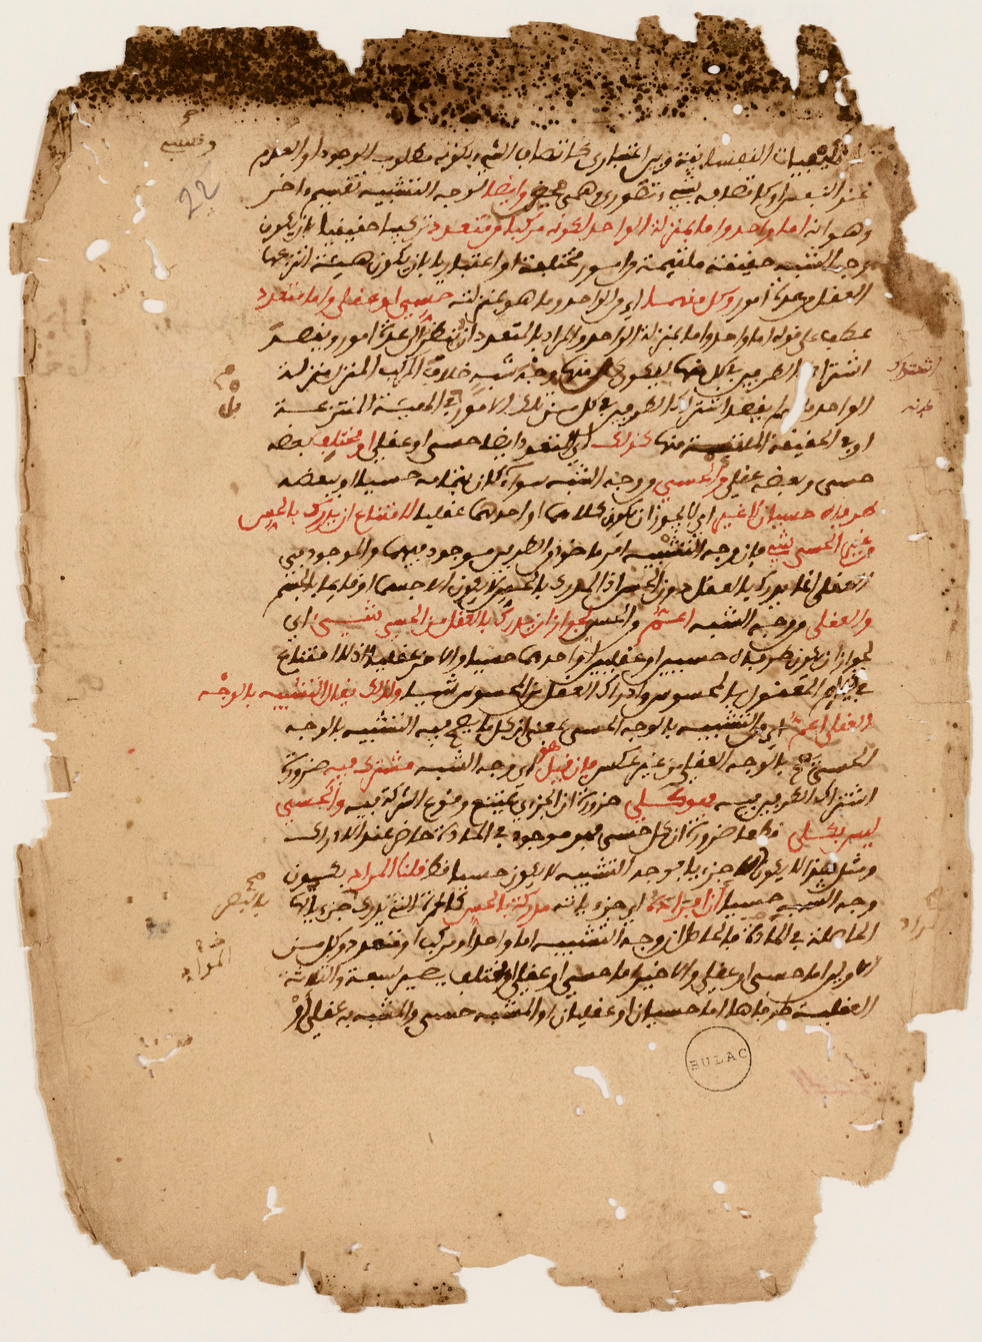 الكيفيات النفسانية وبين اعتباري كاتصاف الشيء بكونه مطلوب الوجود او العدم
عند النفس او كاتصافه بشيء تصوري وهمي محض وايضا لوجه التشبيه تقسيم واخر
وهو انه اما واحد واما بمنزلة الواحد لكونه مركبا من متعدد تركيبا حقيقيا بان يكون
وجه الشبه حقيقة ملتئمة من امور مختلفة او اعتباريا بان يكون هيئة انتزعها
العقل من عدة امور وكل منهما اي من الواحد وما هو بمنزلته حسي او عقلي واما متعدد
عطف على قوله اما واحد واما بمنزلة الواحد والمراد بالتعدد ان ينظر الى عدة امور ويقصد
اشتراك الطرفين في كل منها ليكون كل منها وجه شبه خلاف المركب المنزل منزلة
الواحد فانه لم يقصد اشتراك الطرفين في كل من تلك الامور بل في الهيئة المنتزعة
او في الحقيقة الملتئمة منها كذلك اي المتعدد ايضا حسي او عقلي او مختلف بعضه
حسي وبعضه عقلي والحسي من وجه الشبه سواء كان بتمامه حسيا او ببعضه
طرفاه حسيان لا غير اي لا يجوز ان يكون كلاهما او احدهما عقليا لامتناع ان يدرك بالحس
من غير الحسي شيء فان وجه التشبيه امر ماخوذ من الطرفين موجود فيهما والموجود في
العقلي انما يدرك بالعقل دون الحس اذ المدرك بالحس لا يكون الا جسما او قائما بالجسم
والعقلي من وجه الشبه اعم من الحسي لجواز ان يدرك بالعقل من الحسي شيء اي
لجواز ان يكون طرفاه حسيين او عقليين او احدهما حسيا والاخر عقليا اذ لا امتناع
في قيام المعقول بالمحسوس وادراك العقل من المحسوس شيئا ولذلك يقال التشبيه بالوجه
العقلي اعم من التشبيه بالوجه الحسي بمعنى ان كل ما يصح فيه التشبيه بالوجه
الحسي صح بالوجه العقلي من غير عكس فان قيل هو اي وجه الشبه مشترك فيه ضرورة
اشتراك الطرفين فيه فهو كلي ضرورة ان الجزئي يمتنع وقوع الشركة فيه والحسي
ليس بكلي قطعا ضرورة ان كل حسي فهو موجود في المادة حاضر عند المدرك
ومثل هذا لا يكون الا جزئيا فوجه التشبيه لا يكون حسيا قط قلنا المراد بكون
وجه الشبه حسيا ان افراده اي جزئياته مدركة بالحس كالحمرة التي تدرك جزئياتها
الحاصلة في المادة فالحاصل ان وجه التشبيه اما واحد او مركب او متعدد وكل من
الاولين اما حسي او عقلي والاخير اما حسي او عقلي او مختلف يصير سبعة والثلاثة
العقلية طرفاها اما حسيان او عقليان او المشبه حسي والمشبه به عقلي او
22
BULAC